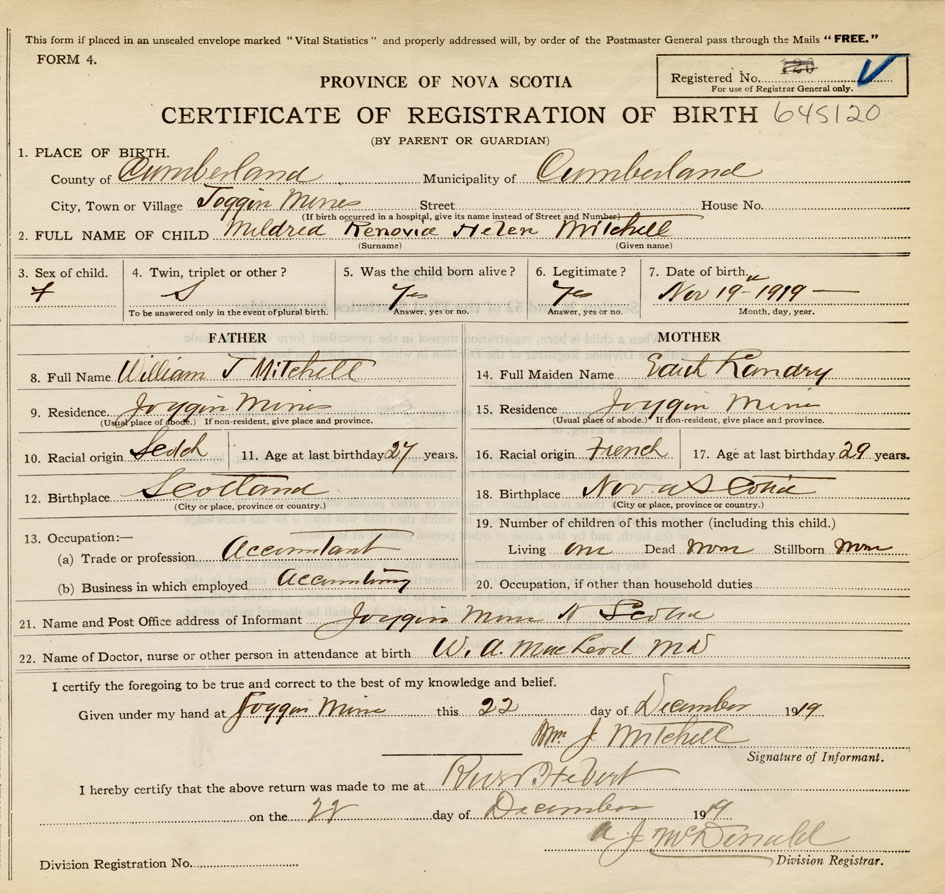 This form if placed in an unsealed envelope marked "Vital Statistics" and properly addressed will, by order of the Postmaster General pass through the Mails "FREE."
FORM 4.
PROVINCE OF NOVA SCOTIA
Registered No. 120
For use of Registrar General only.
CERTIFICATE OF REGISTRATION OF BIRTH 645120
(BY PARENT OR GUARDIAN)
1. PLACE OF BIRTH.
County of Cumberland Municipality of Cumberland
City, Town or Village Joggin Mines Street House No.
(If birth occurred in a hospital, give its name instead of Street and Number)
2. FULL NAME OF CHILD Mildred Renovia Helen Mitchell
(Surname) (Given name)
3. Sex of child. 4. Twin, triplet or other? 5. Was the child born alive? 6. Legitimate? 7. Date of birth.
f S Yes Yes Nov 19th 1919
To be answered only in the event of plural birth. Answer, yes or no. Answer, yes or no. Month, day, year.
FATHER MOTHER
8. Full Name William J Mitchell 14. Full Maiden Name Edith Landry
9. Residence. Joggin Mines 15. Residence Joggin Mine
(Usual place of abode.) If non-resident, give place and province. (Usual place of abode.) If non-resident, give place and province.
10. Racial origin Scotch 11. Age at last birthday 27 years. 16. Racial origin French 17. Age at last birthday 29 years.
12. Birthplace Scotland 18. Birthplace Nova Scotia
(City or place, province or country.) (City or place, province or country.)
13. Occupation:— 19. Number of children of this mother (including this child.)
(a) Trade or profession Accountant Living one Dead non Stillborn non
(b) Business in which employed Accounting 20. Occupation, if other than household duties
21. Name and Post Office address of Informant Joggin Mine N Scotia
22. Name of Doctor, nurse or other person in attendance at birth W. A. MacLeod MD
I certify the foregoing to be true and correct to the best of my knowledge and belief.
Given under my hand at Joggin Mine this 22 day of December 1919
Wm J. Mitchell
Signature of Informant.
I hereby certify that the above return was made to me at River Hebert
on the 22 day of December 1919
A. J. McDonald
Division Registration No. Division Registrar.